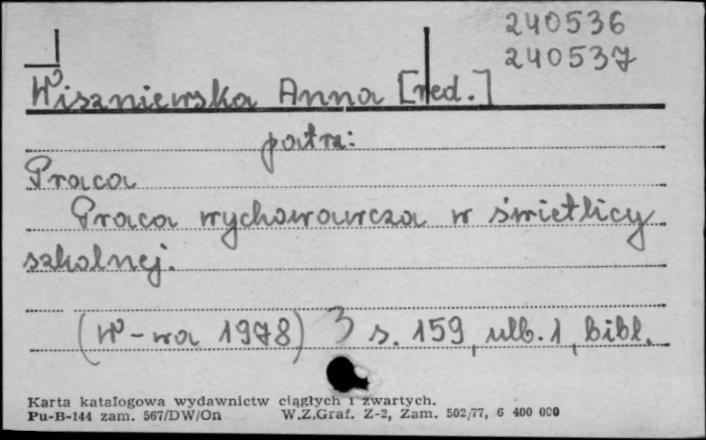 240536
240537
Wiszniewska Anna [red.]
patrz:
Praca
Praca wychowawcza w świetlicy
szkolnej.
(W-wa 1978) 3 s. 159, ulb. 1, bibl.
Karta katalogowa wydawnictw ciągłych i zwartych.
Pu-B-144 zam. 567/DW/On W.Z.Graf. Z-2, Zam. 502/77, 6 400 000